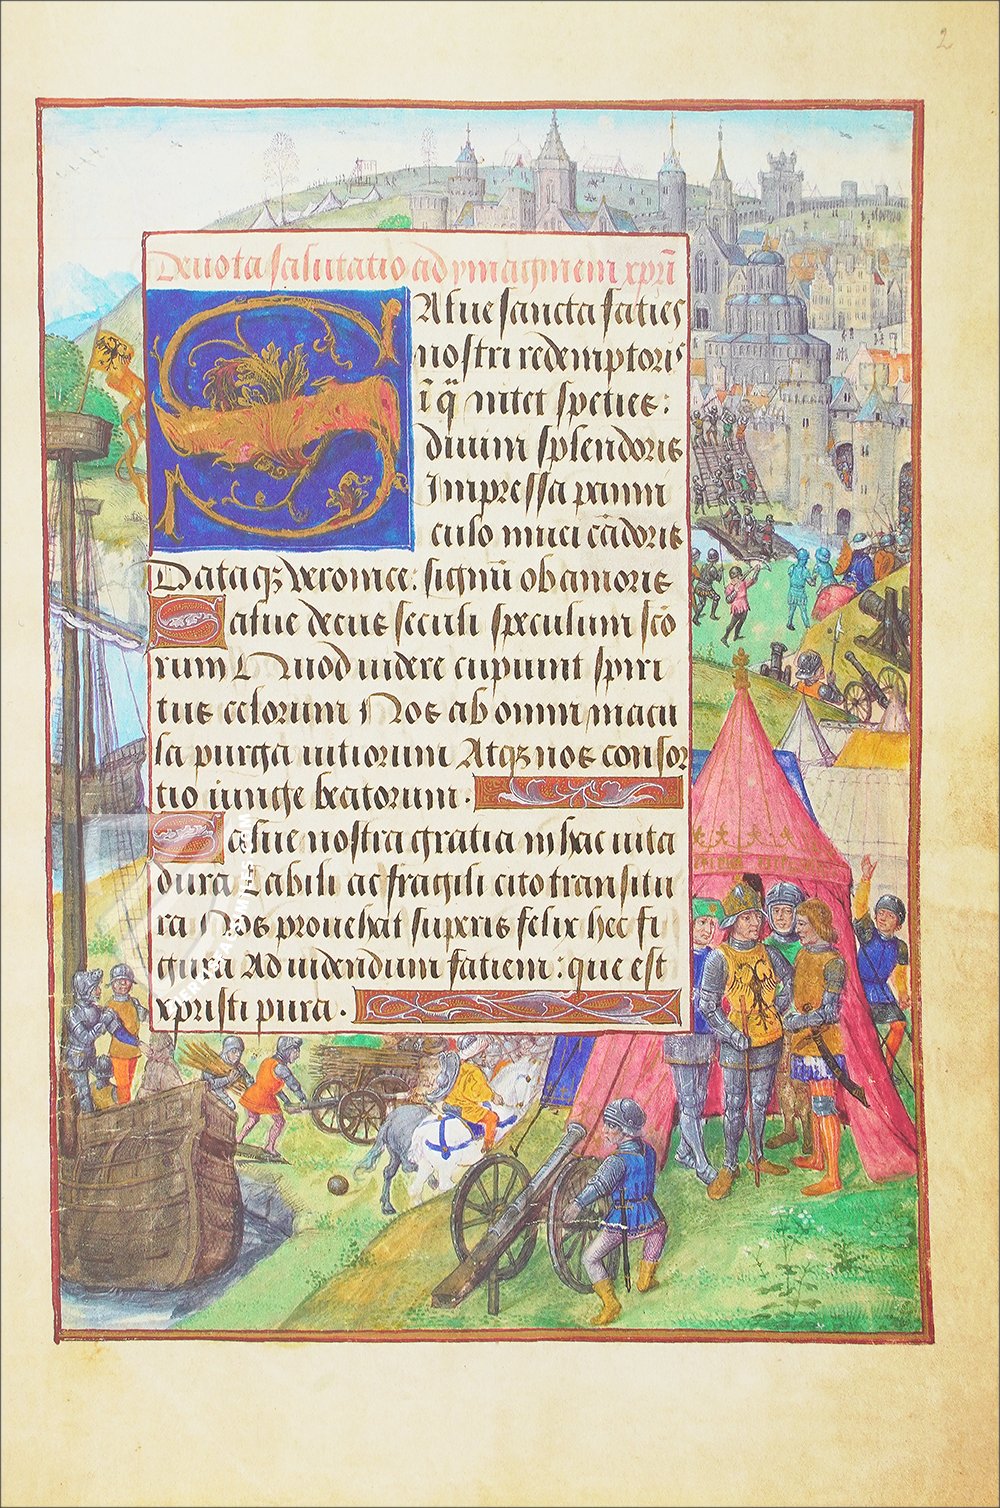 2
Deuota salutatio ad ymaginem xpri
Salue sancta facies
nostri redemptoris
ī q̄ nitet species:
diuini splendoris
Impressa panni
culo niuei cādoris
Dataqꝫ veronice: signū ob amoris
Salue decus seculi speculum sc̄o
rum Quod videre cupiunt spiri
tus celorum Nos ab omni macu
la purga vitiorum Atqꝫ nos consor
tio iunge beatorum.
Salue nostra gratia in hac vita
dura Labili ac fragili cito transitu
ra Nos prouehat superis felix hec fi
gura Ad videndum faciem: que est
xpristi pura.